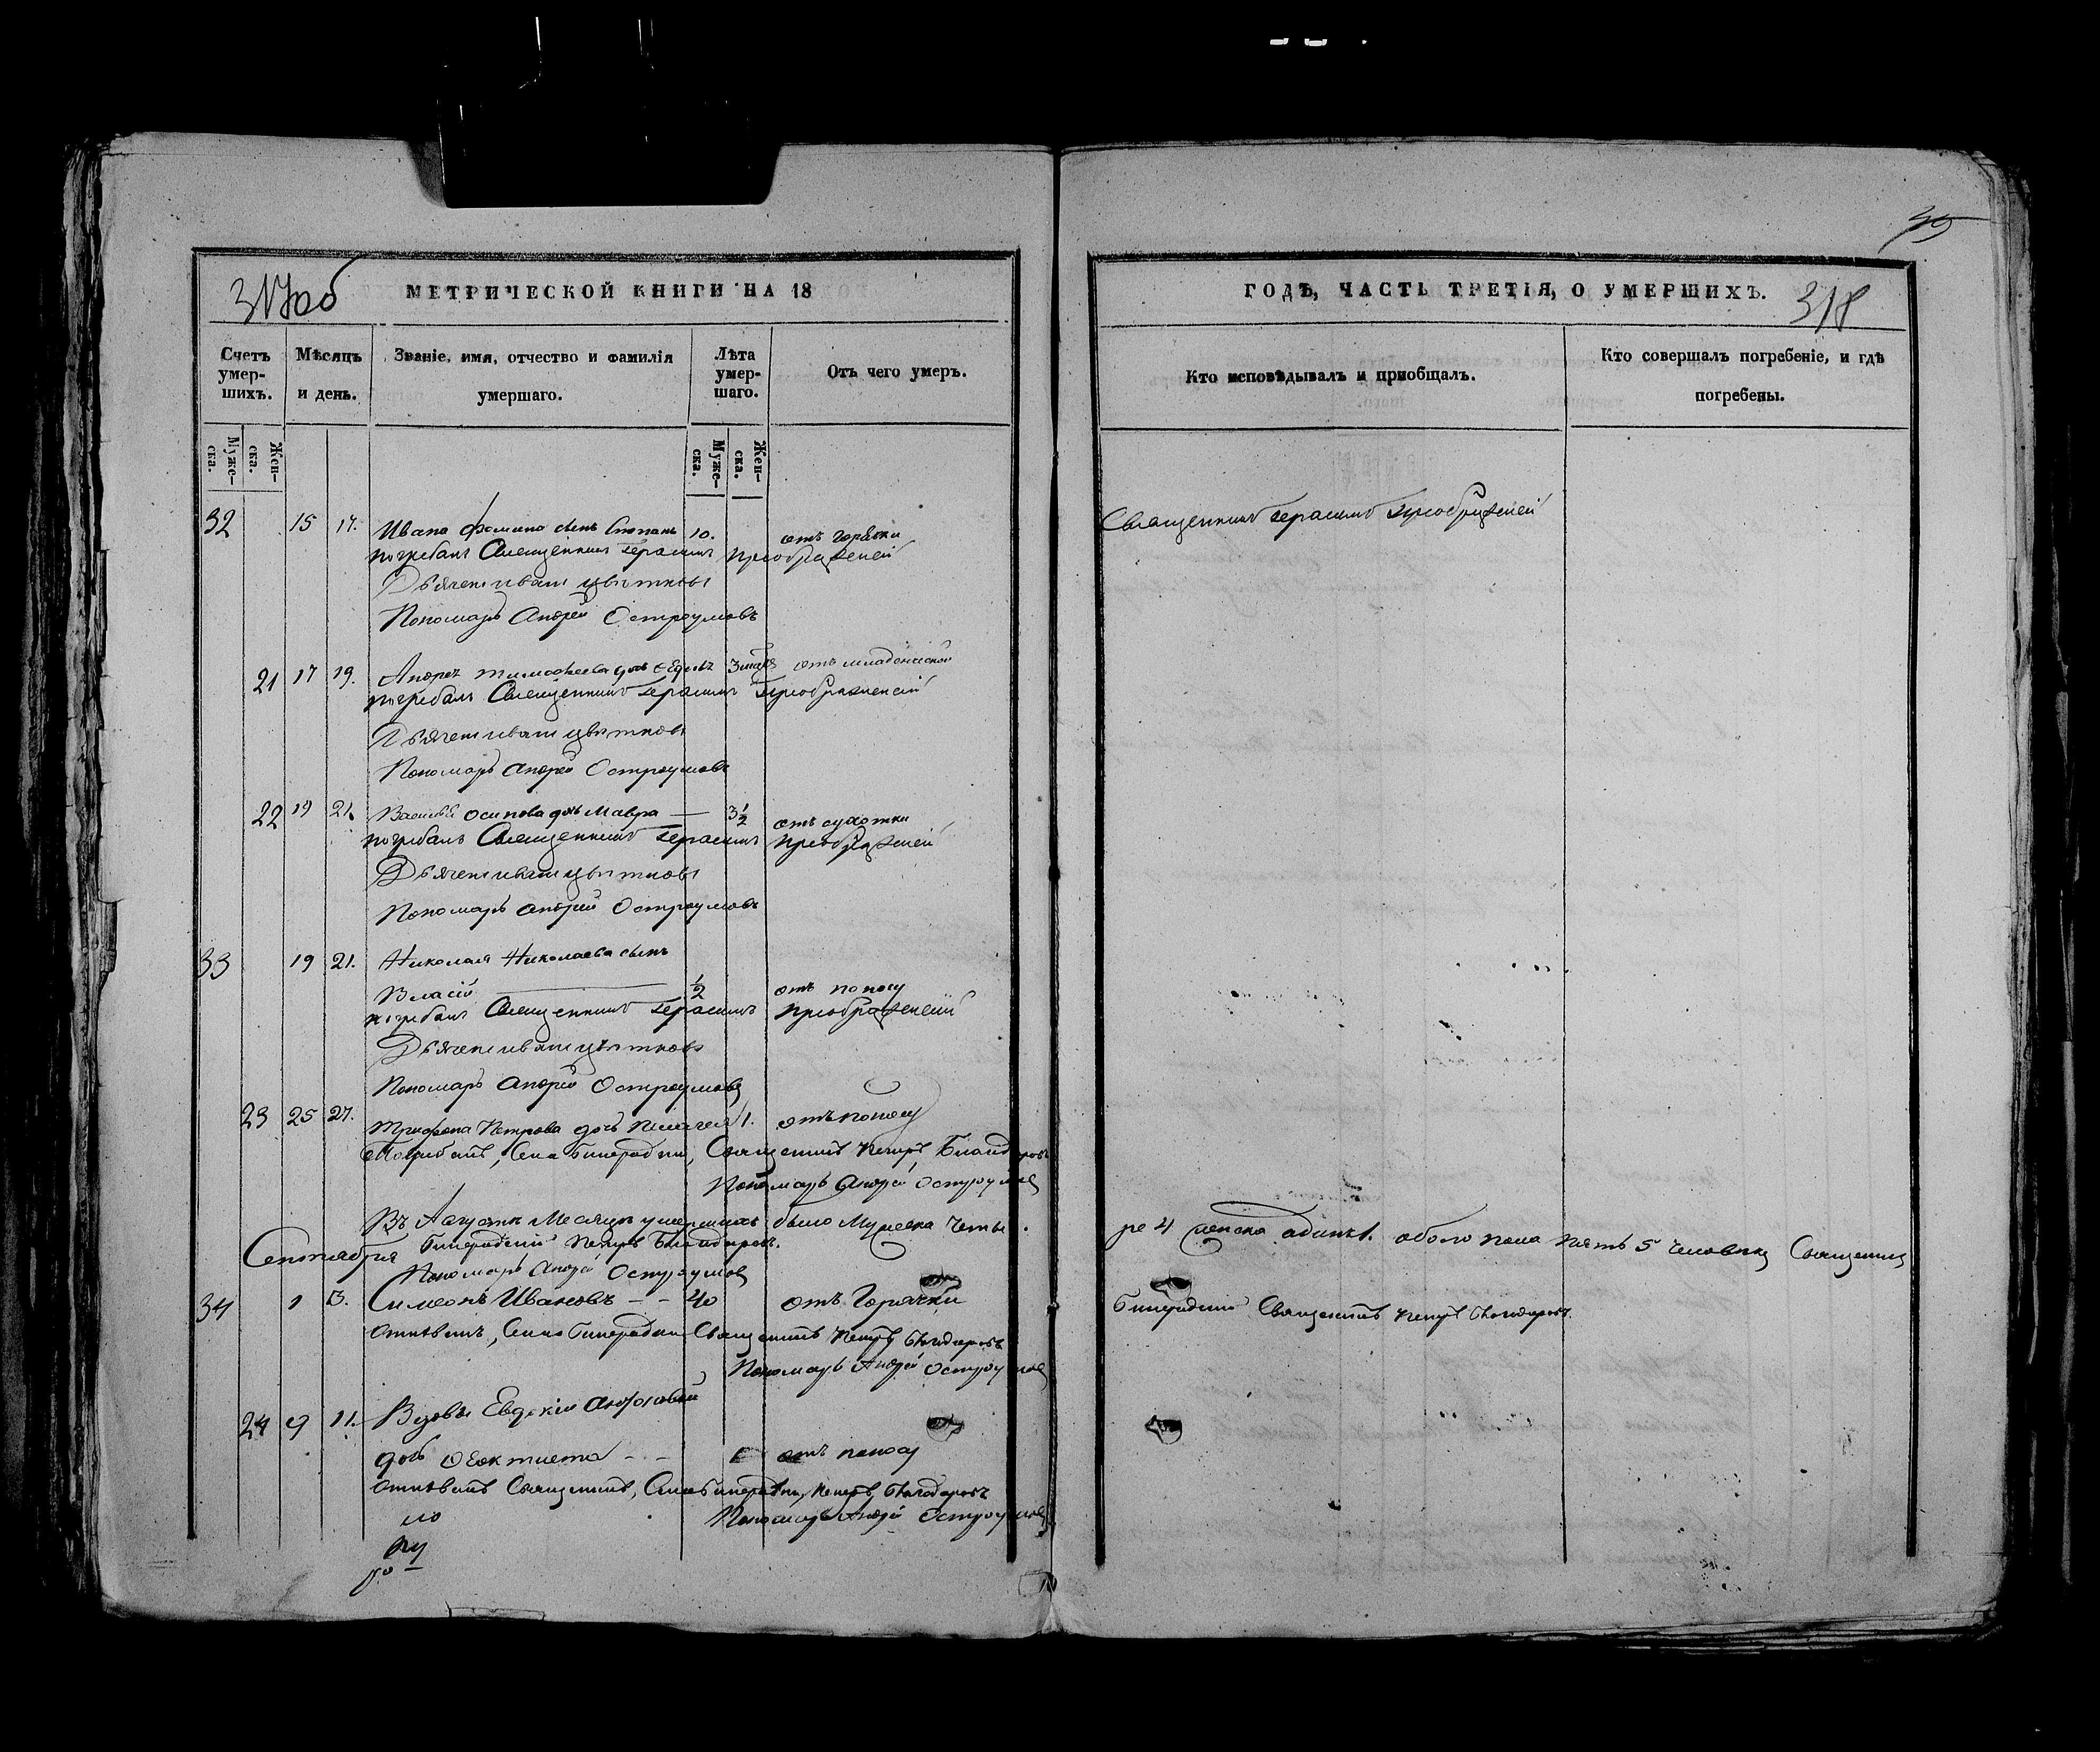 39
317об
МЕТРИЧЕСКОЙ КНИГИ НА 18
ГОДѢ, ЧАСТЬ ТРЕТІЯ, О УМЕРШИХЪ.
318
Счетъ умер-шихъ.
Мѣсяцъ и день.
Званіе, имя, отчество и фамилія умершаго.
Лѣта умер-шаго.
Отъ чего умеръ.
Кто исповѣдывалъ и приобщалъ.
Кто совершалъ погребеніе, и гдѣ погребены.
Муже-ска.
Жен-ска.
Муже-ска.
Жен-ска.
32 15 17. Ивана Фомина сынъ Степанъ 10. отъ горячки Священникъ Герасимъ Преображенскій
погребалъ Священникъ Герасимъ Преображенскій
Дьячекъ Иванъ Цвѣтковъ
Пономарь Андрей Остроумовъ
21 17 19. Андрея Тимофеева дочь отъ младенческой
погребалъ Священникъ Герасимъ Преображенскій
Дьячекъ Иванъ Цвѣтковъ
Пономарь Андрей Остроумовъ
22 19 21. Василья Осипова дочь Мавра — 3 1/2 отъ сухотки
погребалъ Священникъ Герасимъ Преображенскій
Дьячекъ Иванъ Цвѣтковъ
Пономарь Андрей Остроумовъ
33 19 21. Николая Николаева сынъ
Власій — 1/2 отъ поносу
погребалъ Священникъ Герасимъ Преображенскій
Дьячекъ Иванъ Цвѣтковъ
Пономарь Андрей Остроумовъ
23 25 27. Трифона Петрова дочь Пелагея 1. отъ поносу
Погребалъ, Села Священникъ Петръ
Пономарь Андрей Остроумовъ
Въ Августѣ Месяцѣ умершихъ было Мужеска Четы ре 4 женска обоего пола пять 5 человѣкъ Священникъ
Петръ
Сентября
Пономарь Андрей Остроумовъ
34 1 3. Симеонъ Ивановъ - - 40 отъ Горячки Священникъ Петръ
отпѣвалъ, Села Священникъ Петръ
Пономарь Андрей Остроумовъ
24 9 11. Вдовы Евдокіи
дочь Феоктиста - - отъ поносу
отпѣвалъ Священникъ, Села Петръ
Пономарь Андрей Остроумовъ